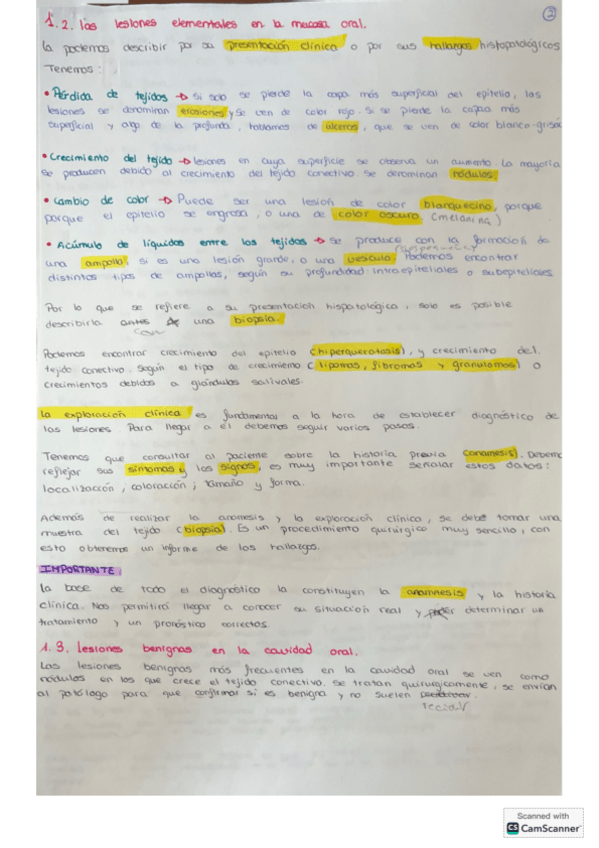 2
1.2. las lesiones elementales en la mucosa oral.
la podemos describir por su presentación clínica o por sus hallazgos histopatológicos
Tenemos:
• Pérdida de tejidos → Si solo se pierde la capa más superficial del epitelio, las
lesiones se denominan erosiones y se ven de color rojo. Si se pierde la capaa más
superficial y algo de la profunda, hablamos de úlceras, que se ven de color blanco-grisác
• Crecimiento del tejido → lesiones en cuya superficie se observa un aumento. La mayoría
se producen debido al crecimiento del tejido conectivo se denominan nódulos
• Cambio de color → Puede ser una lesión de color blanquecino, porque
porque el epitelio se engrosa, o una de color oscuro, (melanina)
• Acúmulo de líquidos entre los tejidos → se produce con la formación de
una ampolla, si es una lesión grande, o una vesícula Podemos encontrar
distintos tipos de ampollas, según su profundidad: intraepiteliales o subepiteliales.
Por lo que se refiere a su presentación hispatológica, solo es posible
describirla antes una biopsia.
con
Podemos encontrar crecimiento del epitelio (hiperqueratosis), y crecimiento del
tejido conectivo. Según el tipo de crecimiento (lipomas, fibromas y granulomas) o
crecimientos debidos a glándulas salivales.
la exploración clínica es fundamental a la hora de establecer diagnóstico de
las lesiones. Para llegar a él debemos seguir varios pasos.
Tenemos que consultar al paciente sobre la historia previa (anamesis). Debemo
reflejar sus síntomas y los signos, es muy importante señalar estos datos:
localización, coloración, tamaño y forma.
Además de realizar la anomesis y la exploración clínica, se debe tomar una
muestra del tejido (biopsia). Es un procedimiento quirúrgico muy sencillo, con
esto obtenemos un informe de los hallazgos.
IMPORTANTE:
la base de todo el diagnóstico la constituyen la anamnesis y la historia
clínica. Nos permitirá llegar a conocer su situación real y poder determinar un
tratamiento y un pronóstico correctos.
1.3. lesiones benignas en la cavidad oral.
Las lesiones benignas más frecuentes en la cavidad oral se ven como
nódulos en los que crece el tejido conectivo, se tratan quirurgicamente, se envían
al patólogo para que confirmar si es benigna y no suelen
Scanned with
CS CamScanner